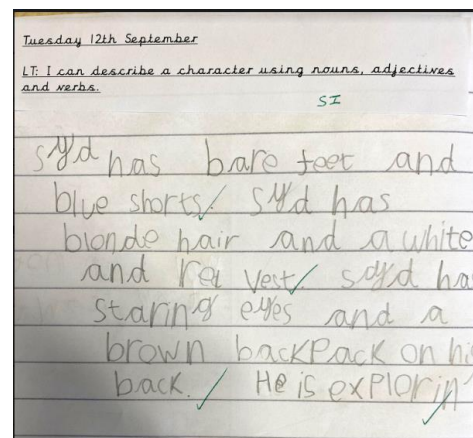 Tuesday 12th September
LT: I can describe a character using nouns, adjectives
and verbs.
SI
syd has bare feet and
blue shorts. syd has
blonde hair and a white
and red vest syd ha
staring eyes and a
brown backpack on hi
back. He is explorin